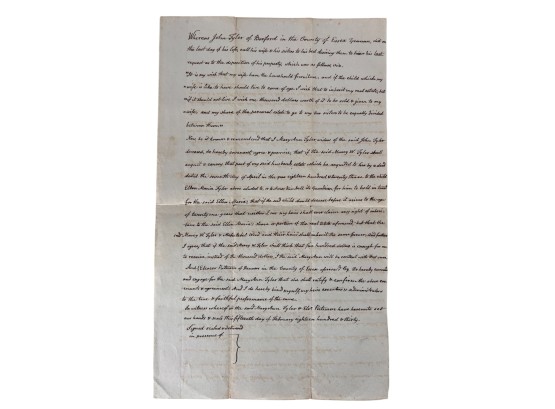 Whereas John Tyler of Boxford in the County of Essex Yeoman, did on
the last day of his life, call his wife & his sisters to his bed
his last
request as to the disposition of his property, which was as follows, viz.
It is my wish that my wife have the household furniture, and if the child which my
wife is like to have should live to come of age I wish that to inherit my real estate, but
if it should not live I wish one thousand dollars worth of it to be sold & given to my
wife, and my share of the personal estate to go to my two sisters to be equally divided
between them.
Now be it known & remembered that I Mary Ann Tyler widow of the said John Tyler
deceased, do hereby covenant, agree & promise, that if the said Mercy W. Tyler shall
acquit & convey that part of my said husbands estate which he requested to her by a deed
dated the seventh day of April in the year eighteen hundred & twenty to the child
Ellen Maria Tyler above alluded to, & to hold in trust
for the said Ellen Maria; that if the said child should decease before it arrives to the age
of twenty one years that neither I nor my heirs shall ever claim any right of
to the said Ellen Maria's share or portion of the real estate aforesaid, but that the
said Mercy W. Tyler & and their heirs shall inherit the same forever. And further
I agree, that if the said Mercy W. Tyler shall think that five hundred dollars is enough for me
to receive instead of the thousand dollars, I the said Mary Ann will be content with that sum.
And I of in the County of Essex aforesaid do hereby
and engage for the said Mary Ann Tyler that she shall satisfy & conform the above
& agreement. And I do hereby bind myself, my heirs executors & administrators
to the true & faithful performance of the same.
In witness whereof we the said Mary Ann Tyler & have hereunto set
our hands & seals this fifteenth day of February eighteen hundred & thirty.
Signed sealed & delivered
in presence of